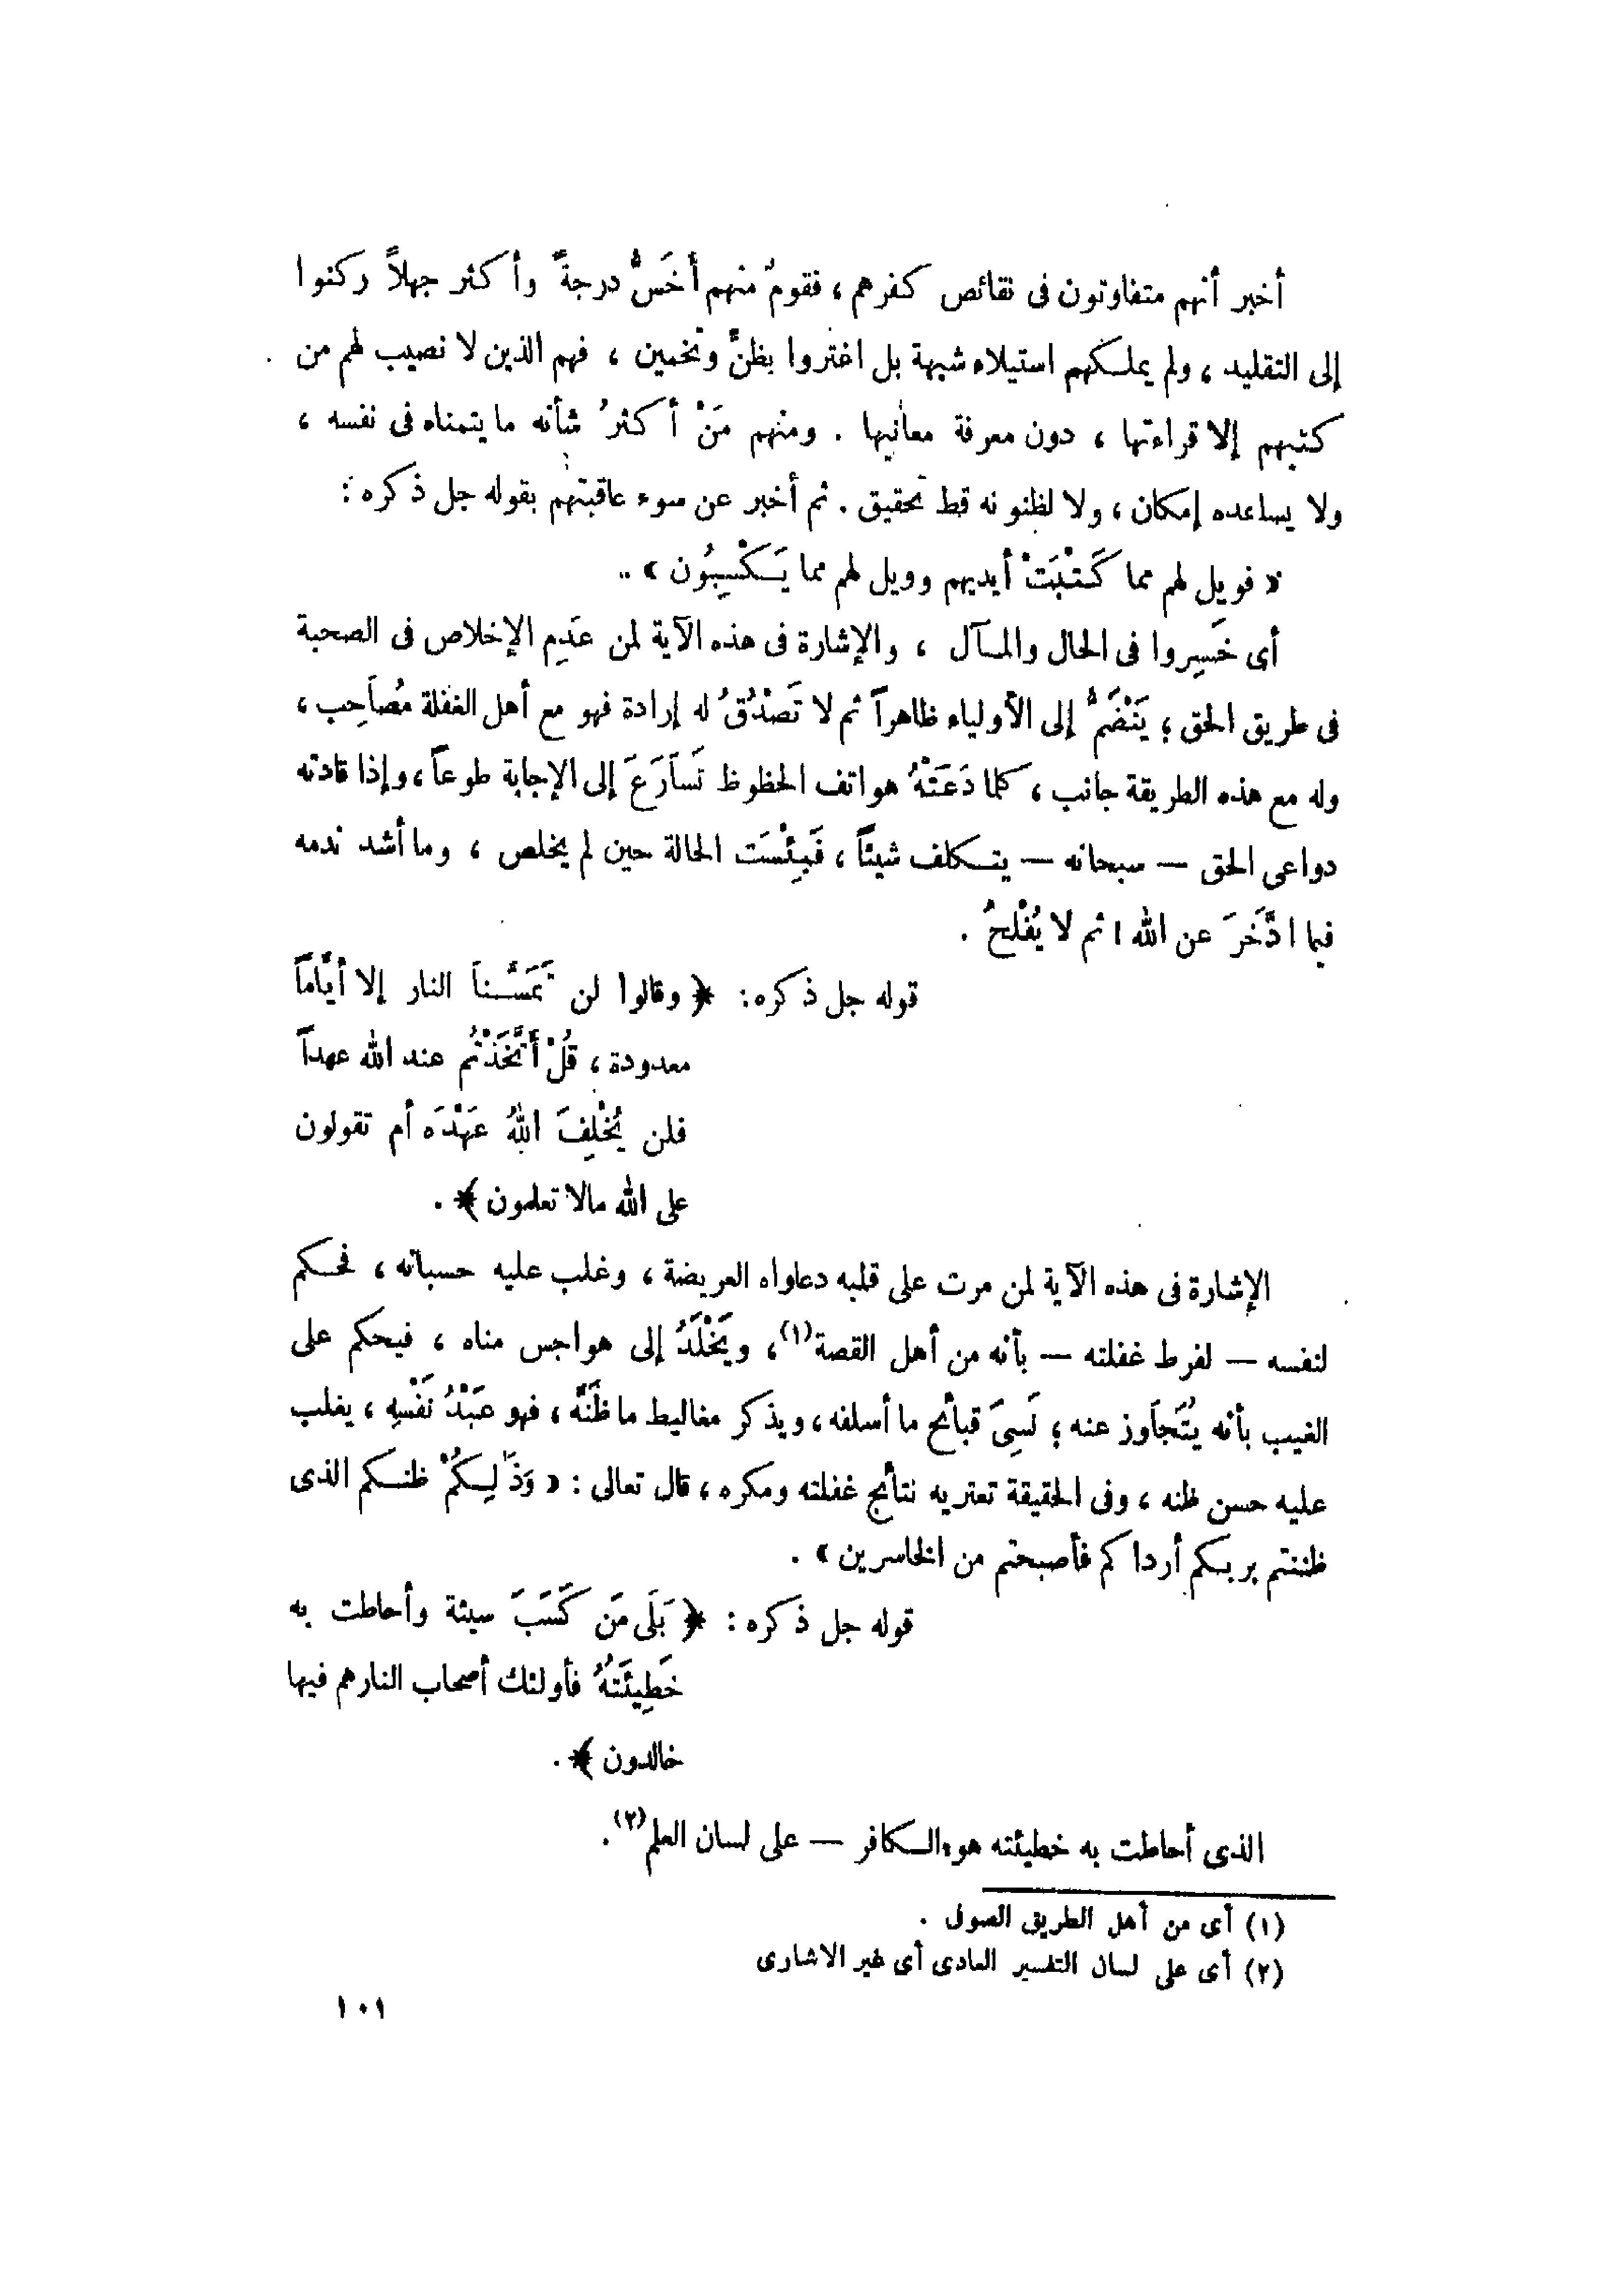 أخبر أنهم متفاوتون فى نقائص كفرهم ، فقومٌ منهم أَخَسُّ درجةً وأكثر جهلاً ركنوا
إلى التقليد ، ولم يملكهم استيلاء شبهة بل اغتروا بظنٍّ وتخمين ، فهم الذين لا نصيب لهم من
كتبهم إلا قراءتها ، دون معرفة معانيها . ومنهم مَنْ أكثرُ شأنه ما يتمناه فى نفسه ،
ولا يساعده إمكان ، ولا لظنونه قط تحقيق . ثم أخبر عن سوء عاقبتهم بقوله جل ذكره :
« فويل لهم مما كَتَبَتْ أيديهم وويل لهم مما يَكْسِبُون » ..
أى خَسِروا فى الحال والمآل ، والإشارة فى هذه الآية لمن عَدِم الإخلاص فى الصحبة
فى طريق الحق ؛ يَنْضَمُّ إلى الأولياء ظاهراً ثم لا تَصْدُقُ له إرادة فهو مع أهل الغفلة مُصاَحِب ،
وله مع هذه الطريقة جانب ، كلما دَعَتْهُ هواتف الحظوظ تَسَارَعَ إلى الإجابة طوعاً ، وإذا قادته
دواعى الحق — سبحانه — يتكلف شيئاً ، فَبِئْسَت الحالة حين لم يخلص ، وما أشد ندمه
فيما ادَّخَرَ عن الله ! ثم لا يُفْلحُ .
قوله جل ذكره : ﴿ وقالوا لن تَمَسَّناَ النار إلا أيَّاماً
معدودة ، قُلْ أَتَّخَذْتُم عند الله عهداً
فلن يُخْلِفَ اللهُ عَهْدَه أم تقولون
على الله مالا تعلمون ﴾ .
الإشارة فى هذه الآية لمن مرت على قلبه دعاواه العريضة ، وغلب عليه حسبانه ، فحكم
لنفسه — لفرط غفلته — بأنه من أهل القصة(١) ، ويَخْلَدُ إلى هواجس مناه ، فيحكم على
الغيب بأنه يُتَجاَوز عنه ؛ نَسِىَ قبائح ما أسلفه ، ويذكر مغاليط ما ظَنَّه ، فهو عَبْدُ نَفْسِه ، يغلب
عليه حسن ظنه ، وفى الحقيقة تعتريه نتائج غفلته ومكره ، قال تعالى : « وَذَٰلِكُمْ ظنكم الذى
ظننتم بربكم أرداكم فأصبحتم من الخاسرين » .
قوله جل ذكره : ﴿ بَلَى مَن كَسَبَ سيئة وأحاطت به
خَطِيئَتَهُ فأولئك أصحاب النار هم فيها
خالدون ﴾ .
الذى أحاطت به خطيئته هو الكافر — على لسان العلم(٢) .
(١) أى من أهل الطريق الصوفى .
(٢) أى على لسان التفسير العادى أى غير الاشارى
١٠١